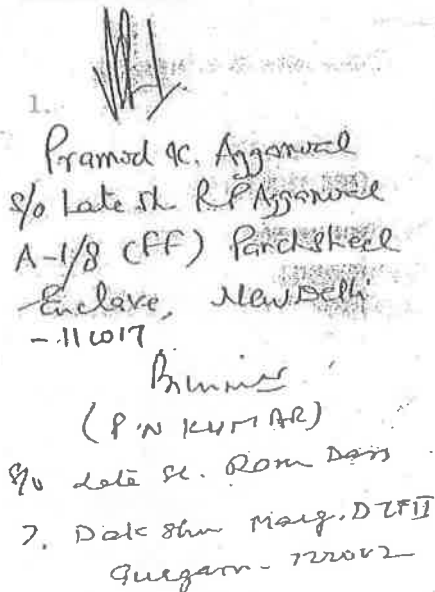 1.
Pramod K. Aggarwal
S/o Late Sh. R P Aggarwal
A-1/8 (FF) Panchsheel
Enclave, New Delhi
- 110017
(P N KUMAR)
S/o Late Sh. Ram Dass
7. Dakshin Marg. DLF II
Gurgaon - 122002